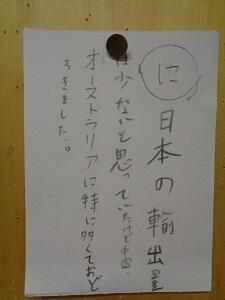 に日本の輸出量
は少ないと思っていたけど中国、
オーストラリアに特に多くておど
ろきました。